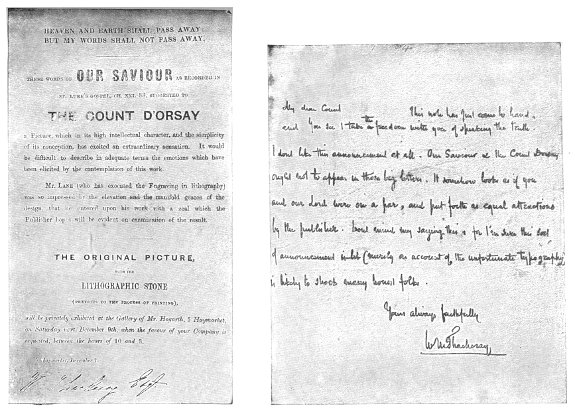 HEAVEN AND EARTH SHALL PASS AWAY
BUT MY WORDS SHALL NOT PASS AWAY.
THESE WORDS OF OUR SAVIOUR AS RECORDED IN
ST. LUKE'S GOSPEL, CH. XXI. 33, SUGGESTED TO
THE COUNT D'ORSAY
a Picture, which in its high intellectual character, and the simplicity
of its conception, has excited an extraordinary sensation. It would
be difficult to describe in adequate terms the emotions which have
been elicited by the contemplation of this work.
MR. LANE (who has executed the Engraving in lithography)
was so impressed by the elevation and the manifold graces of the
design that he entered upon his work with a zeal which the
Publisher hopes will be evident on examination of the result.
THE ORIGINAL PICTURE,
WITH THE
LITHOGRAPHIC STONE
(PREVIOUS TO THE PROCESS OF PRINTING),
will be privately exhibited at the Gallery of Mr. Hogarth, 5 Haymarket,
on Saturday next December 9th, when the favour of your Company is
requested, between the hours of 10 and 5.
Haymarket, December
W. Thackeray Esq
My dear Count This note has just come to hand.
and you see I take the freedom with you of speaking the truth.
I dont like this announcement at all. Our Saviour & the Count Dorsay
ought not to appear in those big letters. It somehow looks as if you
and our Lord were on a par, and put forth as equal attractions
by the publisher. Dont mind my saying this: for I'm sure this sort
of announcement is (merely on account of the unfortunate typography)
is likely to shock many honest folks.
Yours always faithfully
W M Thackeray